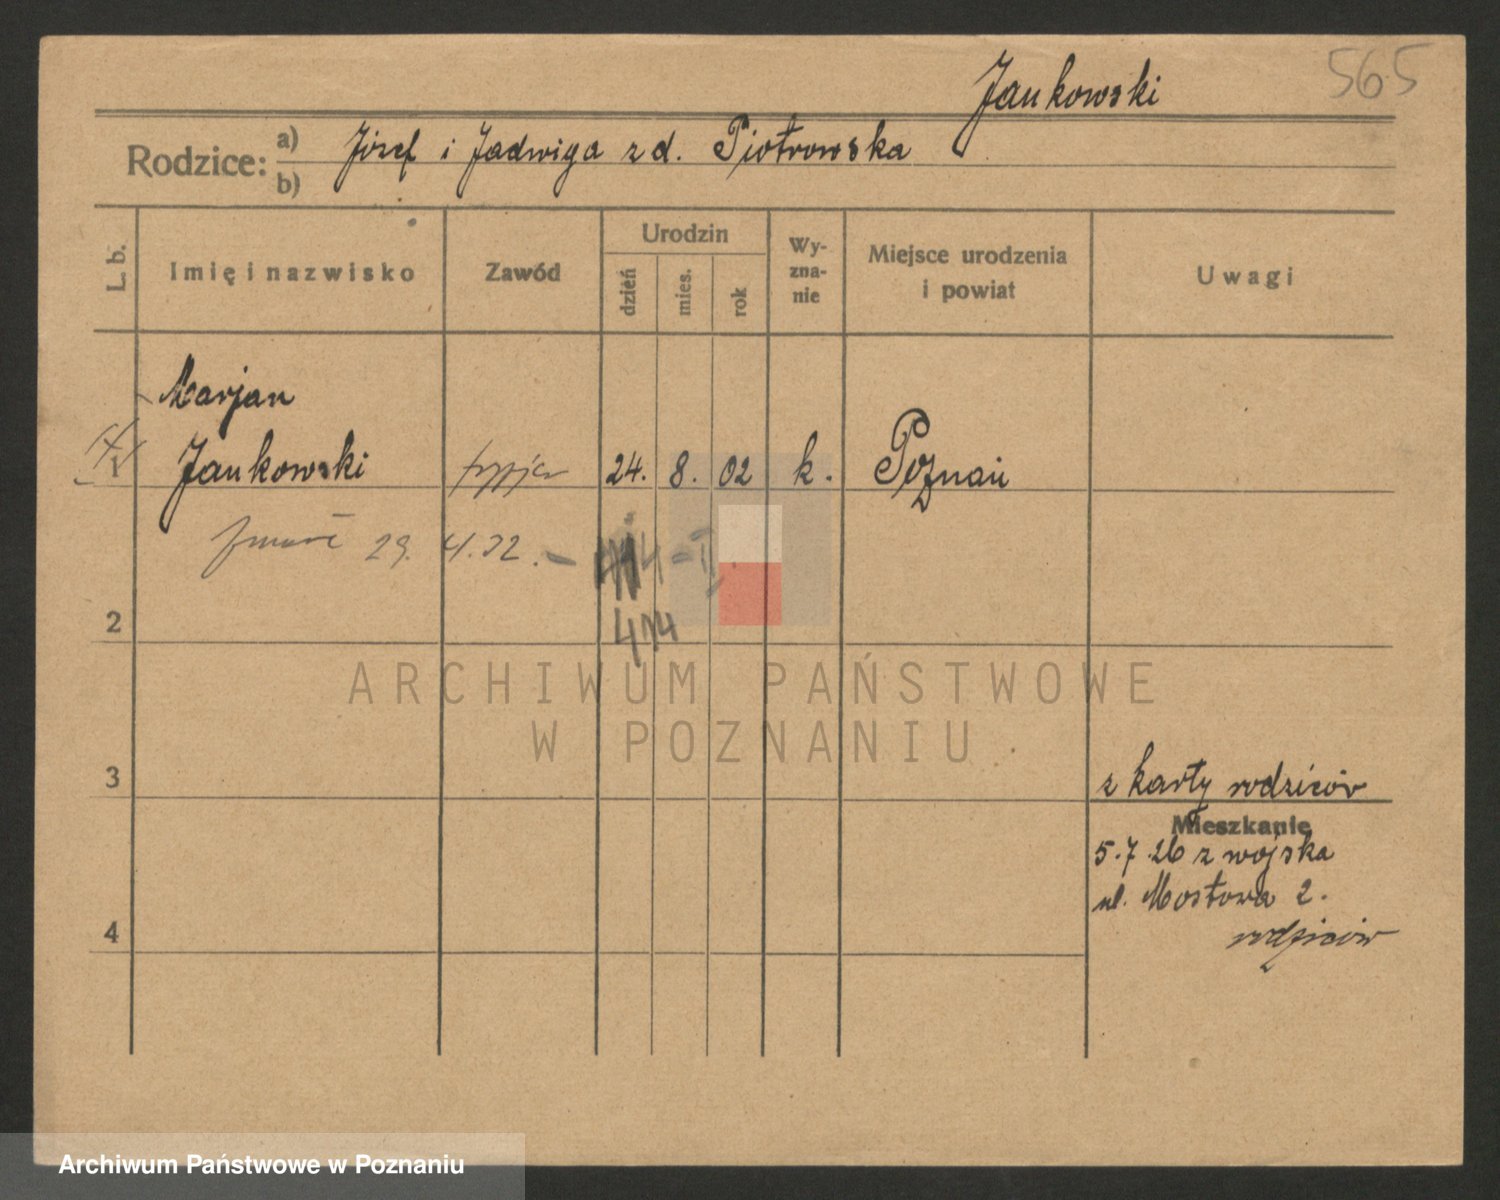 Jankowski
565
Rodzice:
a) Józef i Jadwiga z d. Piotrowska
b)
L. b.
Imię i nazwisko
Zawód
Urodzin
dzień
mies.
rok
Wy-
zna-
nie
Miejsce urodzenia
i powiat
Uwagi
Marjan
1 Jankowski 24. 8. 02 k. Poznań
29. 4. 32. - 414 - II
2
414
ARCHIWUM PAŃSTWOWE
W POZNANIU
3
z karty rodziców
Mieszkanie
5.7.26 z wojska
ul. Mostowa 2.
4
rodziców
Archiwum Państwowe w Poznaniu